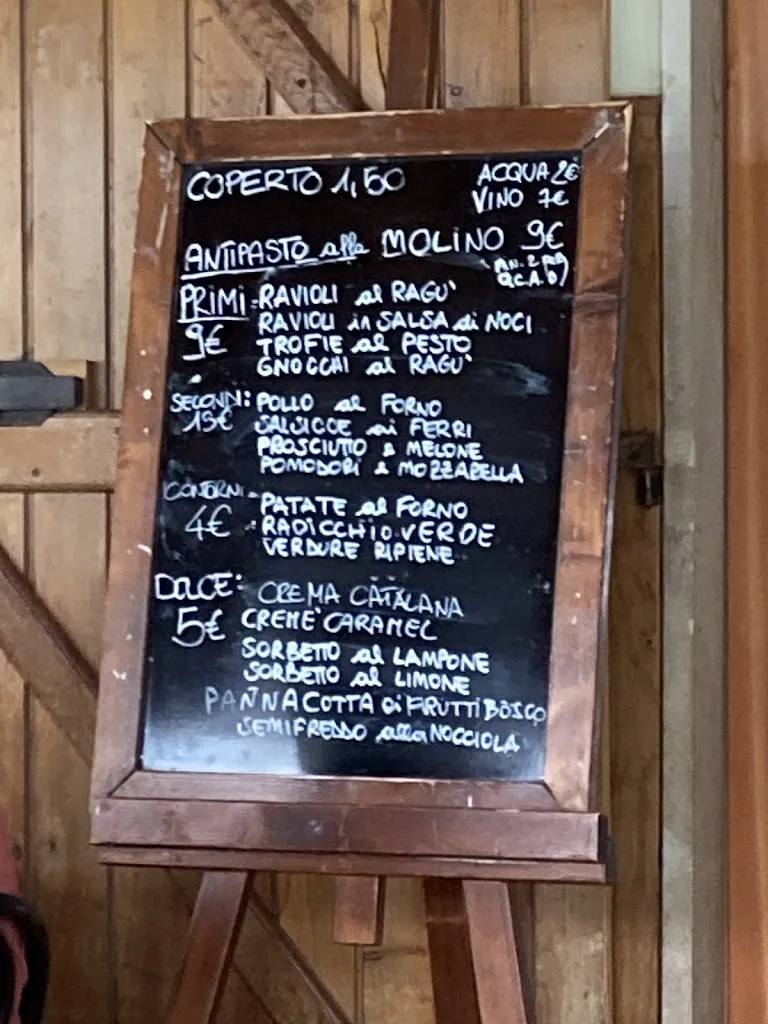 COPERTO 1,50
ACQUA 2€
VINO 7€
ANTIPASTO alla MOLINO 9€
PRIMI: RAVIOLI al RAGU'
9€ RAVIOLI in SALSA di NOCI
TROFIE al PESTO
GNOCCHI al RAGU'
SECONDI: POLLO al FORNO
13€ SALSICCE ai FERRI
PROSCIUTTO & MELONE
POMODORI & MOZZARELLA
CONTORNI - PATATE al FORNO
4€ RADICCHIO VERDE
VERDURE RIPIENE
DOLCE: CREMA CATALANA
5€ CREME CARAMEL
SORBETTO al LAMPONE
SORBETTO al LIMONE
PANNACOTTA di FRUTTI BOSCO
SEMIFREDDO alla NOCCIOLA